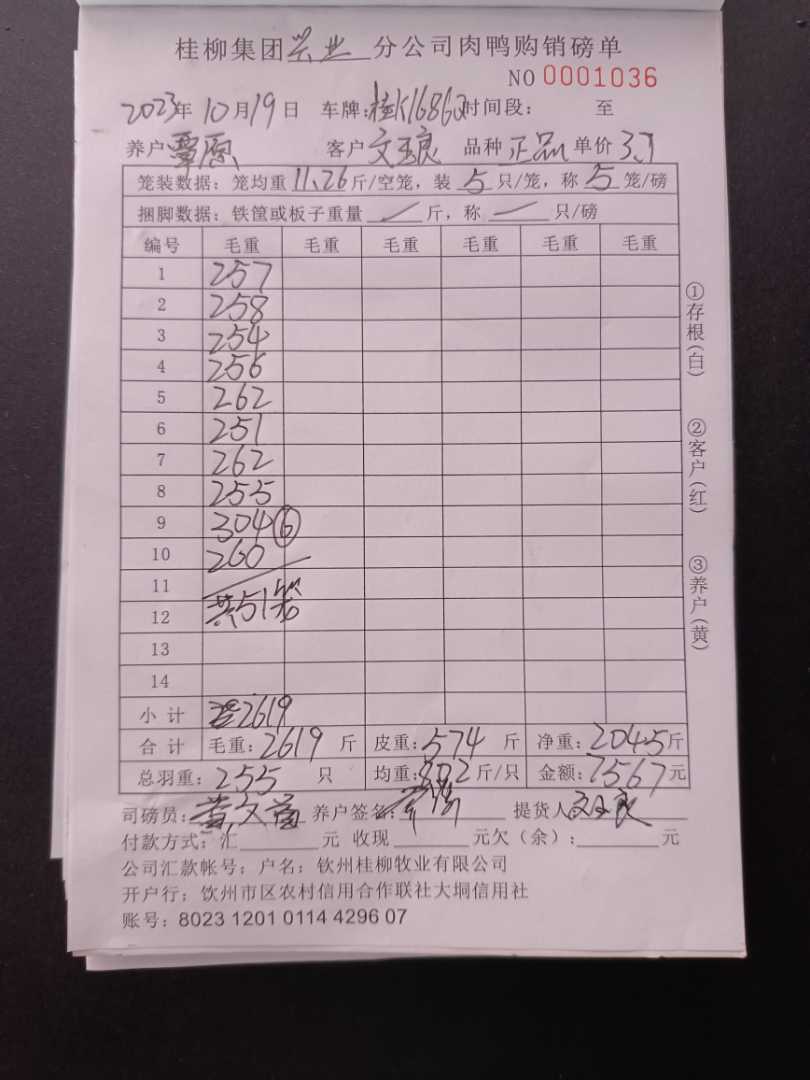 桂柳集团兴业分公司肉鸭购销磅单
NO 0001036
2023年10月19日 车牌:桂K1686Q 时间段: 至
养户 覃愿 客户 文玉良 品种 正品 单价 3.7
笼装数据：笼均重 11.26 斤/空笼，装 5 只/笼，称 5 笼/磅
捆脚数据：铁筐或板子重量 / 斤，称 / 只/磅
编号 毛重 毛重 毛重 毛重 毛重 毛重
1 257
2 258
3 254
4 256
5 262
6 251
7 262
8 255
9 304 ⑥
10 260
11
12 共51笼
13
14
小计 2619
合计 毛重: 2619 斤 皮重: 574 斤 净重: 2045 斤
总羽重: 255 只 均重: 8.02 斤/只 金额: 7567 元
司磅员: 养户签名: 提货人 文玉良
付款方式：汇 元 收现 元欠（余）: 元
公司汇款帐号；户名；钦州桂柳牧业有限公司
开户行；钦州市区农村信用合作联社大垌信用社
账号: 8023 1201 0114 4296 07
①存根(白)
②客户(红)
③养户(黄)